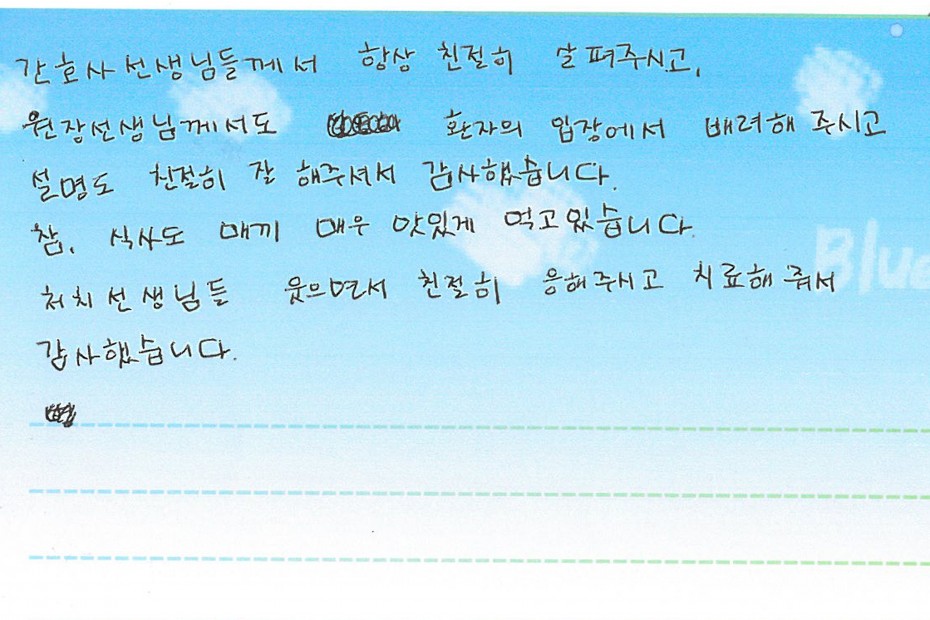 간호사선생님들께서 항상 친절히 살펴주시고,
원장선생님께서도 환자의 입장에서 배려해 주시고
설명도 친절히 잘 해주셔서 감사했습니다.
참, 식사도 매끼 매우 맛있게 먹고있습니다.
처치선생님들 웃으면서 친절히 응해주시고 치료해 줘서
감사했습니다.
Blue